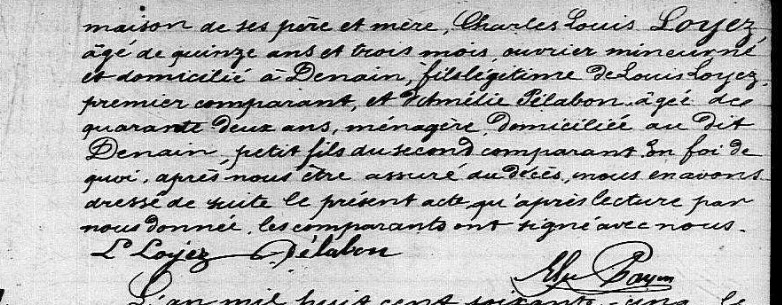 maison de ses père et mère, Charles Louis Loyez,
âgé de quinze ans et trois mois, ouvrier mineur né
et domicilié à Denain, fils légitime de Louis Loyez,
premier comparant, et d'Amélie Pélabon, âgée de
quarante deux ans, ménagère, domiciliée au dit
Denain, petit fils du second comparant. En foi de
quoi, après nous être assuré du décès, nous en avons
dressé de suite le présent acte, qu'après lecture par
nous donnée, les comparants ont signé avec nous.
L Loyez Pélabon
L'an mil huit cent soixante-cinq, le